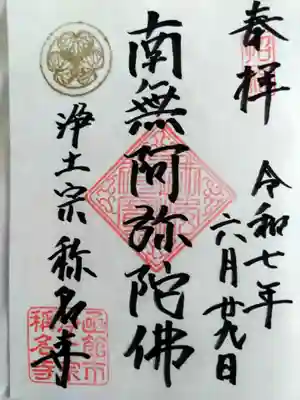 奉拝
令和七年
六月廿九日
南無阿弥陀佛
浄土宗 称名寺
函館市
称名寺